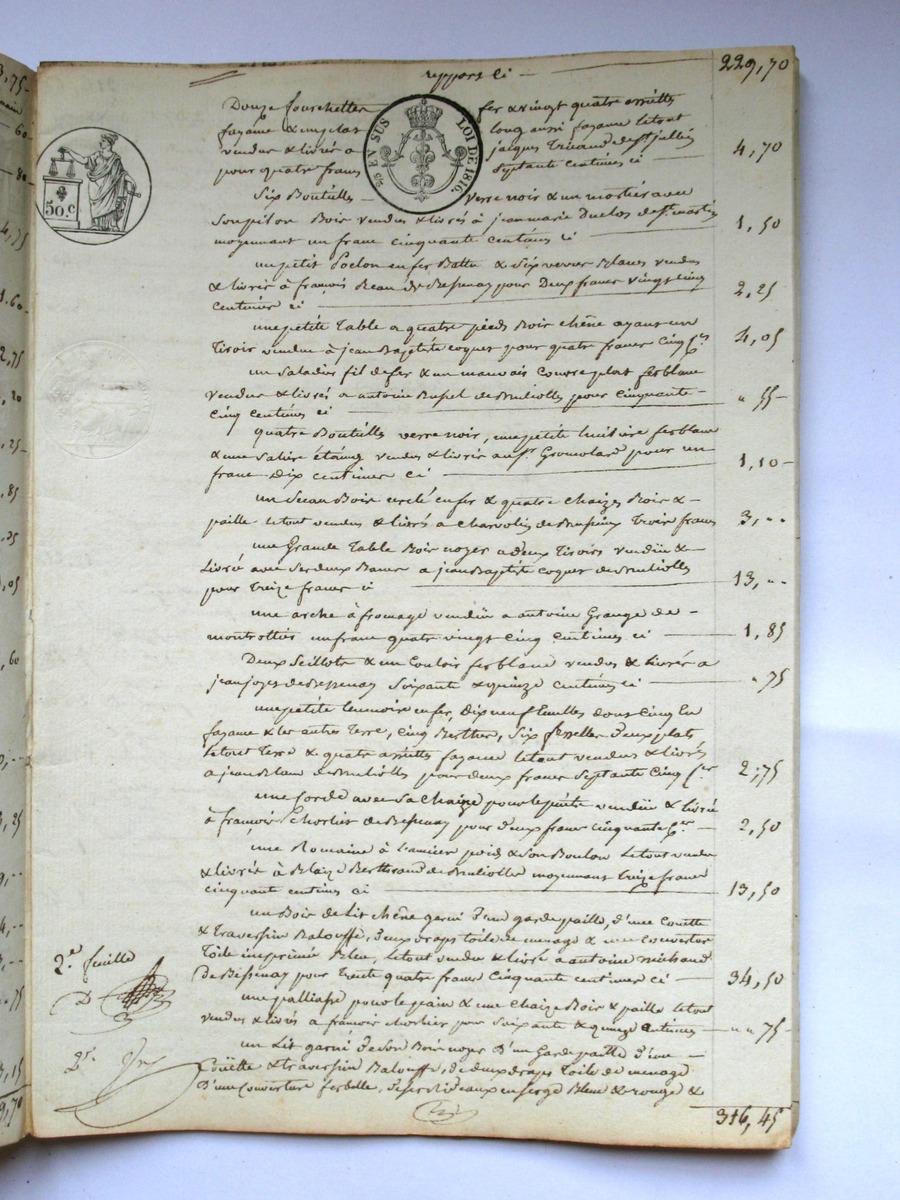 report ci — 229,70
Douze fourchettes fer & vingt quatre assiettes
fayance & un plat long aussi fayance le tout
vendu & livré à jacques
pour quatre francs Septante Centimes ci 4,70
2/5 EN SUS LOI DE 1816.
50.c
Six Bouteilles verre noir & un mortier avec
Son pilon Bois vendus & livrés à jean marie Duclos de St martin
moyennant un franc cinquante centimes ci 1,50
un petit Poelon en fer Battu & Six verres Blancs vendus
& livrés à françois Beau de Bessenay pour Deux francs vingt cinq
Centimes ci 2,25
une petite Table a quatre pieds Bois chêne ayant un
Tiroir vendue à jean Baptiste coquet pour quatre francs Cinq Ces 4,05
un Saladier fil de fer & un mauvais Couvre plat fer blanc
vendus & livrés a antoine de Brullioles pour Cinquante-
Cinq Centimes ci " 55
quatre Bouteilles verre noir, une petite fer blanc
& une Salière étaing vendus & livrés au Sr pour un
franc Dix centimes ci 1,10
un Seau Bois cerclé en fer & quatre Chaizes Bois &
paille le tout vendus & livrés a Charvolin de Trois francs 3, " "
une Grande Table Bois noyer a deux Tiroirs vendüe &
Livrée avec Ses deux Bancs a jean Baptiste coquet de Brullioles
pour Treize francs ci 13, " "
une arche à fromage vendüe a antoine Grange de
montrottier un franc quatre vingt Cinq Centimes ci 1,85
Deux Seillots & un Couloir fer blanc vendus & Livrés a
jean de Bessenay Soixante & quinze Centimes ci " 75
une petite en fer, dix neuf dont Cinq En
fayance & les autres Terre, Cinq Berthes, Six deux plats
le tout Terre & quatre assiettes fayance le tout vendus & livrés
a jean Blanc de Brullioles pour deux francs Septante Cinq Ces 2,75
une avec Sa Chaize pour vendüe & livrée
à françois Chorlier de Bessenay pour deux francs cinquante Ces 2,50
une Romaine à poids & Son Boulon le tout vendu
& livrée à Blaize Berthrand de Brullioles moyennant treize francs
cinquante centimes ci 13,50
un Bois de Lit chêne garni d'une garde paille, d'une Couette
& Traversin Balouffe, deux draps toile de menage & une couverte
Toile imprimée Bleu, le tout vendu & livré à antoine michaud
de Bessenay pour Trente quatre francs Cinquante centimes ci 34,50
une palliasse pour le pain & une Chaize Bois & paille le tout
vendus & livrés a françois Chorlier pour Soixante & quinze Centimes " " 75
un Lit garni de Son Bois noyer D'un Garde paille d'une
Coüette & traversin Balouffe, de deux draps Toile de menage
D'une Couverture de Ses Rideaux en Serge Bleue & rouge &
316,45
2e. feuille
D
2e.